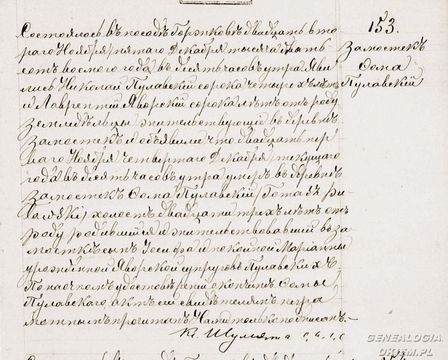 Состоялось въ посадѣ Горжковѣ двадцать вто
раго Ноября пятаго Декабря тысяча девять
сотъ восьмого года въ десять часовъ утра Яви
лись Николай Пулавскій сорока четырехъ лѣтъ
и Лаврентій Яворскій сорока лѣтъ отъ роду
Земледѣльцы жительствующіе въ деревнѣ
Замостекъ и объявили что двадцать пер
ваго Ноября четвертаго Декабря текущаго
года въ десять часовъ утра умеръ въ деревнѣ
Замостекъ Сома Пулавскій
холостъ двадцати трехъ лѣтъ отъ
роду родившійся и жительствовавшій въ За
мосткѣ сынъ Іосифа и покойной Маріанны
урожденной Яворской супруговъ Пулавскихъ.
По настоящемъ удостовѣреніи о кончинѣ Сомы
Пулавскаго актъ сей свидѣтелямъ негра
мотнымъ прочитанъ Нами только подписанъ.
153.
Замостекъ
Сома
Пулавскій
GENEALOGIA
OKIEM.PL